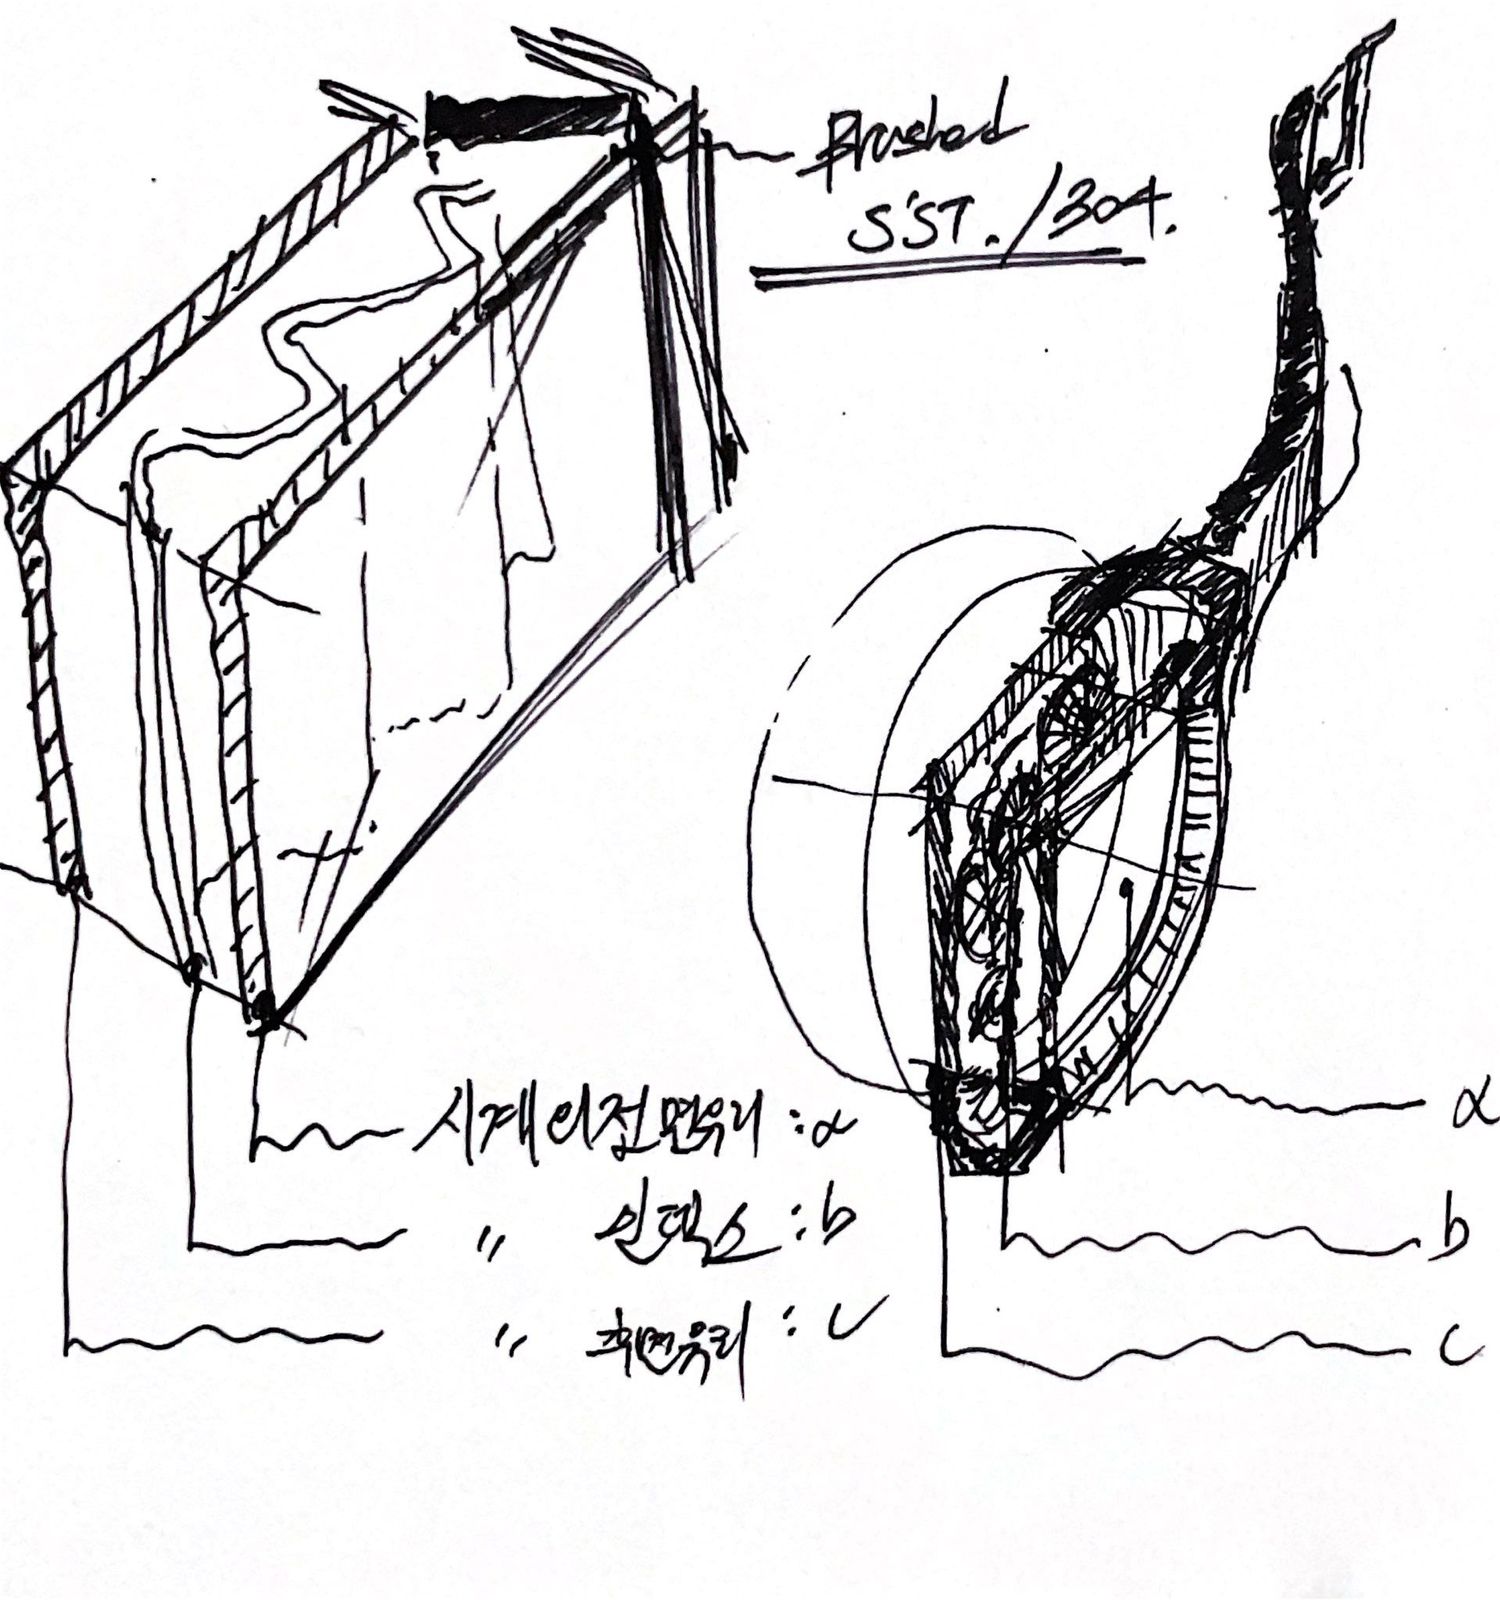 Brushed
S'ST. /304.
시계의전면유리 : a
〃 인덱스 : b
〃 후면유리 : c
a
b
c